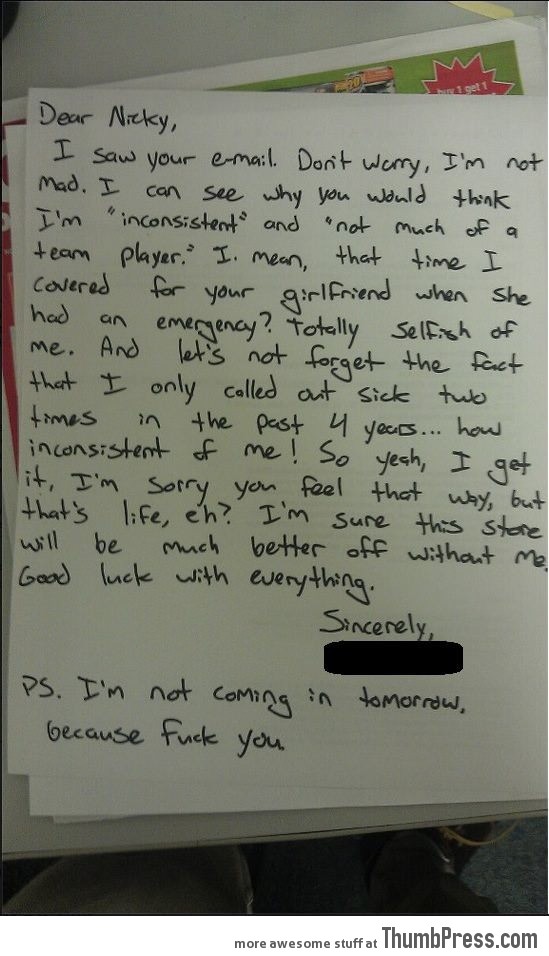 buy 1 get 1
Dear Nicky,
I saw your e-mail. Don't worry, I'm not
mad. I can see why you would think
I'm "inconsistent" and "not much of a
team player." I mean, that time I
covered for your girlfriend when she
had an emergency? Totally selfish of
me. And let's not forget the fact
that I only called out sick two
times in the past 4 years... how
inconsistent of me! So yeah, I get
it, I'm sorry you feel that way, but
that's life, eh? I'm sure this store
will be much better off without me.
Good luck with everything.
Sincerely,
PS. I'm not coming in tomorrow,
because fuck you.
more awesome stuff at ThumbPress.com